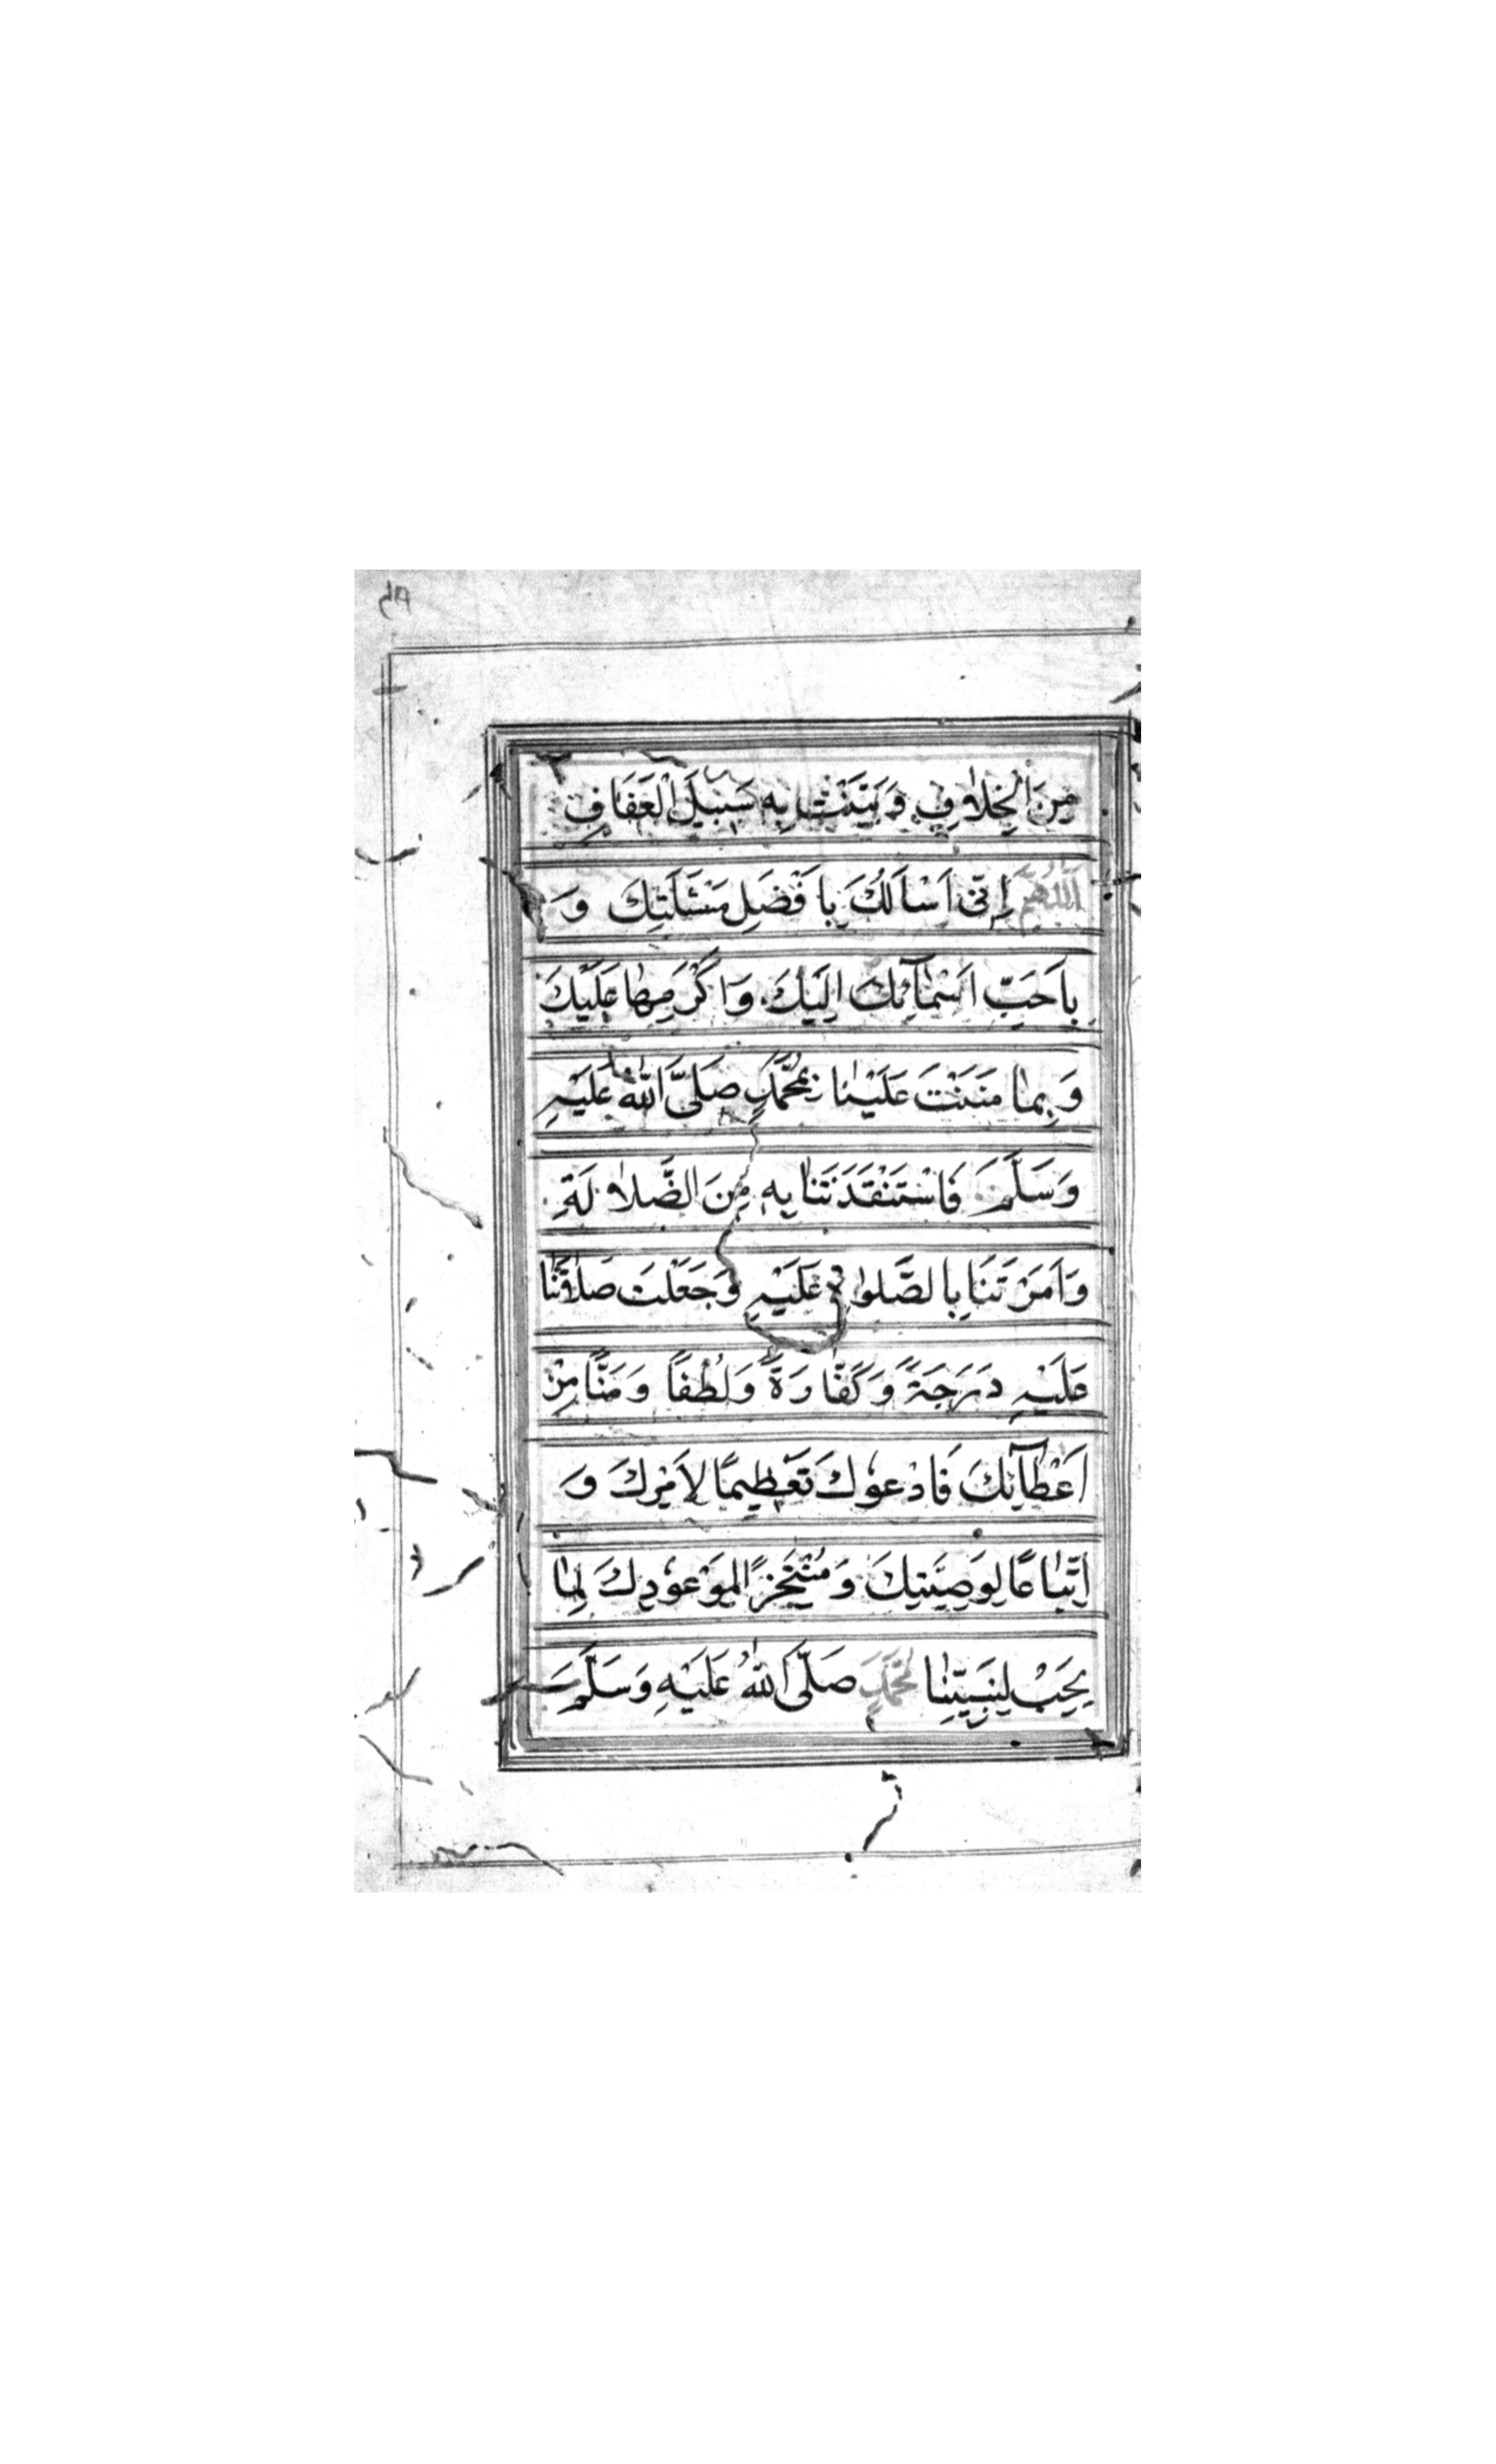 مِنَ الْخِلَافِ وَبَيَّنْتَ بِهِ سَبِيْلَ الْعَفَافِ
اَللّٰهُمَّ اِنِّى اَسْاَلُكَ بِاَفْضَلِ مَسْئَلَتِكَ وَ
بِاَحَبِّ اَسْمَآئِكَ اِلَيْكَ وَاَكْرَمِهَا عَلَيْكَ
وَبِمَا مَنَنْتَ عَلَيْنَا بِمُحَمَّدٍ صَلَّى اللّٰهُ عَلَيْهِ
وَسَلَّمَ فَاسْتَنْقَذْتَنَا بِهِ مِنَ الضَّلَالَةِ
وَاَمَرْتَنَا بِالصَّلٰوةِ عَلَيْهِ وَجَعَلْتَ صَلَاتَنَا
عَلَيْهِ دَرَجَةً وَكَفَّارَةً وَلُطْفًا وَمَنًّا مِنْ
اَعْطَآئِكَ فَادْعُوْكَ تَعْظِيْمًا لِاَمْرِكَ وَ
اِتِّبَاعًا لِوَصِيَّتِكَ وَمُنْتَجِزًا لِمَوْعُوْدِكَ لِمَا
يَجِبْ لِنَبِيِّنَا مُحَمَّدٍ صَلَّى اللّٰهُ عَلَيْهِ وَسَلَّمَ